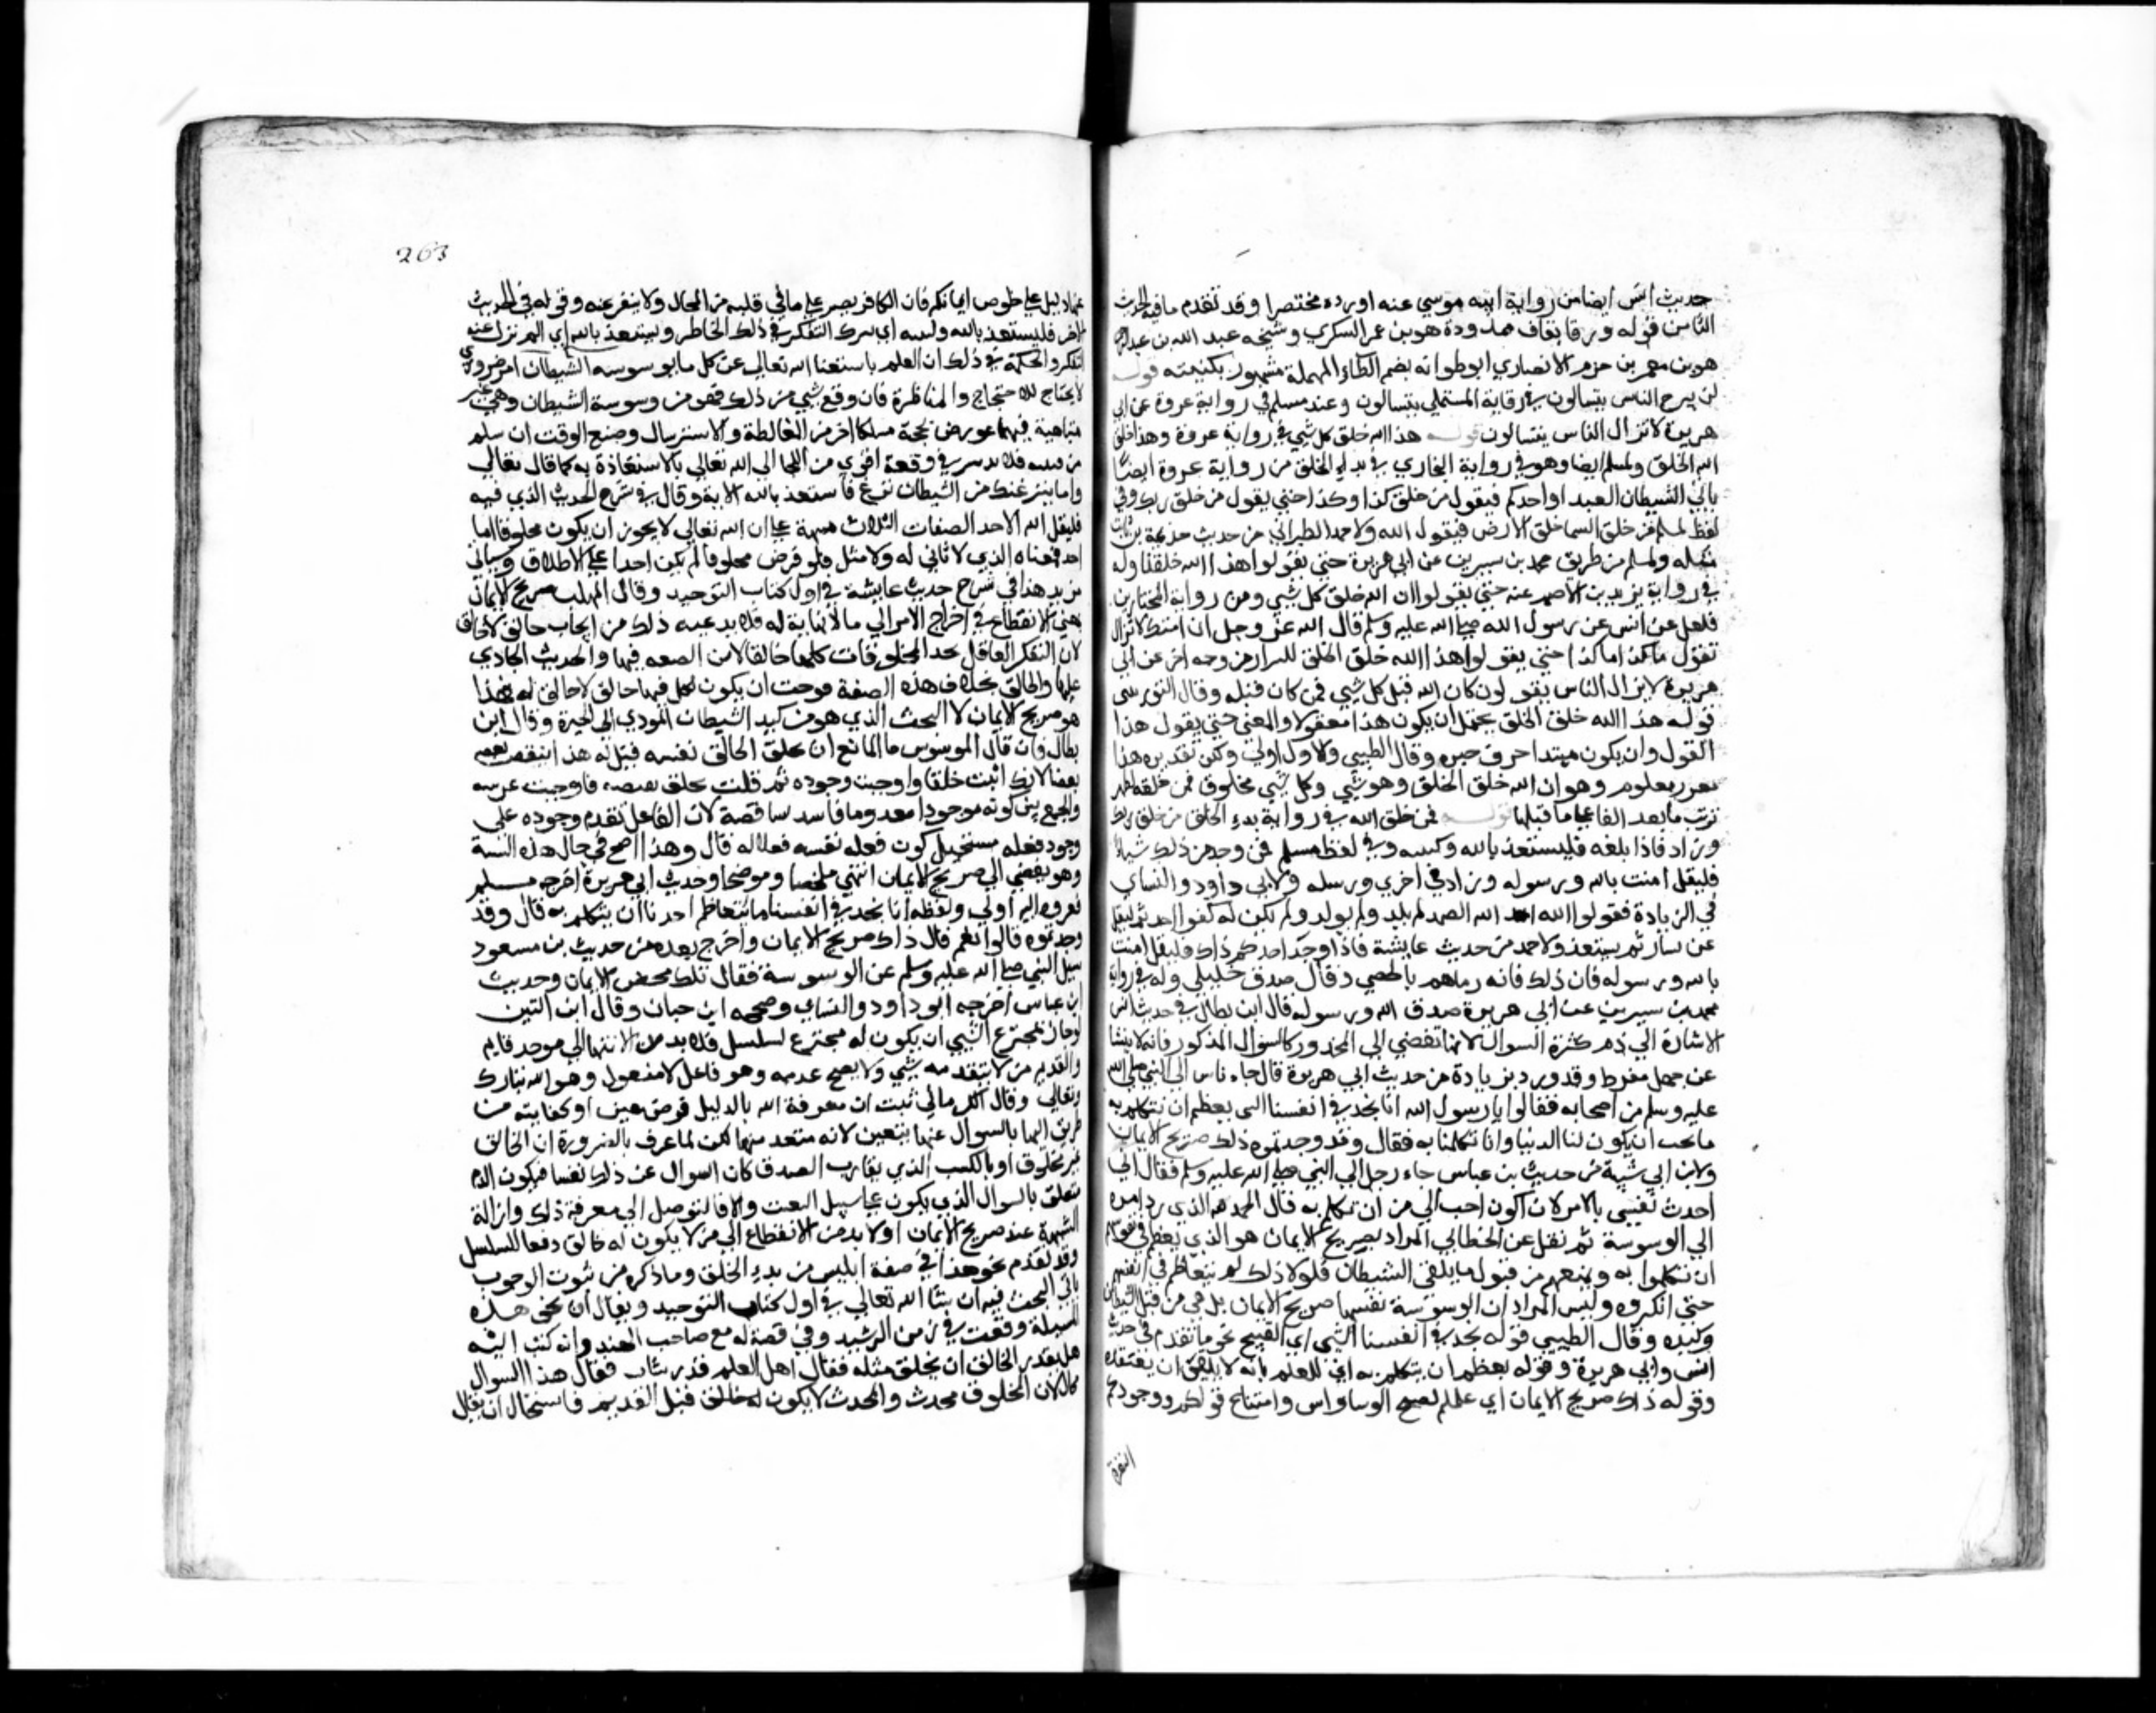 حديث انس ايضا من رواية ابنه موسي عنه اورده مختصرا وقد تقدم ما فيه الحديث
الثامن قوله ورقا بقاف ممدودة هو بن عمر اليشكري وشيخه عبد الله بن عبد الرحمن
هو بن معمر بن حزم الانصاري ابو طوالة بضم الطاء المهملة مشهور بكنيته قوله
لن يبرح الناس يتسالون في رواية المستملي يسالون وعند مسلم في رواية عروة عن ابي
هريرة لا تزال الناس يتسالون قوله هذا الله خلق كل شي في رواية عروة وهذا خلق
الله الخلق ولمسلم ايضا وهو في رواية البخاري في بدء الخلق من رواية عروة ايضا
ياتي الشيطان العبد او احدكم فيقول من خلق كذا وكذا حتي يقول من خلق ربك وفي
لفظ لمسلم من خلق السما خلق الارض فيقول الله ولاحمد والطبراني من حديث خزيمة بن ثابت
مثله ولمسلم من طريق محمد بن سيرين عن ابي هريرة حتي يقولوا هذا الله خلقنا وله
في رواية يزيد بن الاصم عنه حتي يقولوا ان الله خلق كل شي ومن رواية المختار بن
فلفل عن انس عن رسول الله صلي الله عليه وسلم قال الله عز وجل ان امتك لا تزال
تقول ما كذا ما كذا حتي يقولوا هذا الله خلق الخلق للبزار من وجه اخر عن ابي
هريرة لا يزال الناس يقولون كان الله قبل كل شي فمن كان قبله وقال التوربشتي
قوله هذا الله خلق الخلق يحتمل ان يكون هذا مفعولا والمعني حتي يقول هذا
القول وان يكون مبتدا حذف خبره وقال الطيبي والاول اولي ولكن تقديره هذا
مقرر معلوم وهو ان الله خلق الخلق وهو شي وكل شي مخلوق فمن خلقه فظهر
ترتب ما بعد الفا علي ما قبلها قوله فمن خلق الله في رواية بدء الخلق من خلق ربك
وزاد فاذا بلغه فليستعذ بالله ولينته وفي لفظ مسلم فمن وجد من ذلك شيا
فليقل امنت بالله ورسوله وزاد في اخري ورسله ولابي داود والنساي
في الزيادة فقولوا الله احد الله الصمد لم يلد ولم يولد ولم يكن له كفوا احد ثم ليتفل
عن يساره ثم يستعذ ولاحمد من حديث عايشة فاذا وجد احدكم ذلك فليقل امنت
بالله ورسوله فان ذلك فانه رماهم بالحصي وقال صدق خليلي وله في رواية
محمد بن سيرين عن ابي هريرة صدق الله ورسوله قال ابن بطال في حديث انس
الاشارة الي ذم كثرة السوال لانها تفضي الي المحذور كالسوال المذكور فانه لا ينشا
عن جهل مفرط وقد ورد بزيادة من حديث ابي هريرة قال جاء ناس الي النبي صلي الله
عليه وسلم من اصحابه فقالوا يا رسول الله انا نجد في انفسنا الشي يعظم ان نتكلم به
ما نحب ان يكون لنا الدنيا وانا تكلمنا به فقال وقد وجدتموه ذلك صريح الايمان
ولابن ابي شيبة من حديث بن عباس جاء رجل الي النبي صلي الله عليه وسلم فقال اني
احدث نفسي بالامر لان اكون احب الي من ان تكلم به قال الحمد لله الذي رد امره
الي الوسوسة ثم نقل عن الخطابي المراد بصريح الايمان هو الذي يعظم في نفوسهم
ان تكلموا به ويمنعهم من قبول ما يلقي الشيطان فلولا ذلك لم يتعاظم في انفسهم
حتي انكروه وليس المراد ان الوسوسة نفسها صريح الايمان بل هي من قبل الشيطان
وكيده وقال الطيبي قوله نجد في انفسنا الشي اي القبيح نحو ما تقدم في حديث
انس وابي هريرة وقوله يعظم ان يتكلم به اي للعلم بانه لا يليق ان يعتقده
وقوله ذاك صريح الايمان اي علمكم بقبيح الوساوس وامتناع قولكم ووجودكم
النفرة
263
عنها دليل علي خلوص ايمانكم فان الكافر يصر علي ما في قلبه من المحال ولا ينفر عنه وقوله في الحديث
الاخر فليستعذ بالله ولينته اي يترك التفكر في ذلك الخاطر ويستعيذ بالله اي الم تزل عنه
التفكر والحكمة في ذلك ان العلم باستغنا الله تعالي عن كل ما يوسوسه الشيطان امر ضروري
لا يحتاج للاحتجاج والمناظرة فان وقع شي من ذلك فهو من وسوسة الشيطان وهي غير
متناهية فمهما عورض بحجة مسلكا اخر من المغالطة والاسترسال وضيع الوقت ان سلم
من فتنته فلا تدبير في دفعه اقوي من اللجا الي الله تعالي بالاستعاذة به كما قال تعالي
واما ينزغنك من الشيطان نزغ فاستعذ بالله الاية وقال في شرح الحديث الذي فيه
فليقل الله الاحد الصفات الثلاث منبهة علي ان الله تعالي لا يجوز ان يكون مخلوقا اما
احد فمعناه الذي لا ثاني له ولا مثل فلو فرض مخلوقا لم يكن احدا علي الاطلاق وسياتي
مزيد هذا في شرح حديث عايشة في اول كتاب التوحيد وقال المهلب صريح الايمان
هي الانقطاع في اخراج الامر الي مالا نهاية له فلا بد عند ذلك من ايجاب خالق لا خالق
لان التفكر العاقل يجد المخلوقات كلها خالقا لاثر الصنعة فيها والحديث الجاري
عليها والخالق بخلاف هذه الصفة فوجب ان يكون لكل فيها خالق لا خالق له فهذا
هو صريح الايمان لا البحث الذي هو من كيد الشيطان المودي الي الحيرة وقال ابن
بطال فان قال الموسوس ما المانع ان يخلق الخالق نفسه قيل له هذا ينقض بعضه
بعضا لانك اثبت خلقا واوجبت وجوده ثم قلت يخلق نفسه فاوجبت عدمه
والجمع بين كونه موجودا معدوما فاسد لتناقضه لان الفاعل تقدم وجوده علي
وجود فعله مستحيل كون فعله نفسه فعلا له قال وهذا اصح في حال هذه الشبهة
وهو يفضي الي صريح الايمان انتهي ملخصا وموضحا وحديث ابي هريرة اخرجه مسلم
فعزوه اليه اولي ولفظه انا نجد في انفسنا ما يتعاظم احدنا ان يتكلم به قال وقد
وجدتموه قالوا نعم قال ذاك صريح الايمان واخرج بعده من حديث بن مسعود
سيل النبي صلي الله عليه وسلم عن الوسوسة فقال تلك محض الايمان وحديث
ابن عباس اخرجه ابو داود والنساي وصححه ابن حبان وقال ابن التين
لو جاز لمخترع الشي ان يكون له مخترع لتسلسل فلا بد من الانتها الي موجد قديم
والقديم من لا يتقدمه شي ولا يصح عدمه وهو فاعل لا مفعول وهو الله تبارك
وتعالي وقال الكرماني ثبت ان معرفة الله بالدليل فرض عين او كفاية من
طريق اليها بالسوال عنها يتعين لانه مقدمتها لكن لما عرف بالضرورة ان الخالق
غير مخلوق او بالكسب الذي يقارب الصدق كان السوال عن ذلك تعنتا فيكون الذم
يتعلق بالسوال الذي يكون علي سبيل التعنت والا فالتوصل الي معرفة ذلك وازالة
الشبهة عنه صريح الايمان اولا بد من الانقطاع الي من لا يكون له خالق دفعا للتسلسل
وقد تقدم نحو هذا في صفة ابليس من بدء الخلق وما ذكره من ثبوت الوجوب
ياتي البحث فيه ان شا الله تعالي في اول كتاب التوحيد ويقال ان نحو هذه
المسيلة وقعت في زمن الرشيد وفي قصة له مع صاحب الهند وانه كتب اليه
هل يقدر الخالق ان يخلق مثله فقال اهل العلم فذر شاب فقال هذا السوال
محال لان المخلوق محدث والمحدث لا يكون له خالق قبل القديم فاستحال ان يقال